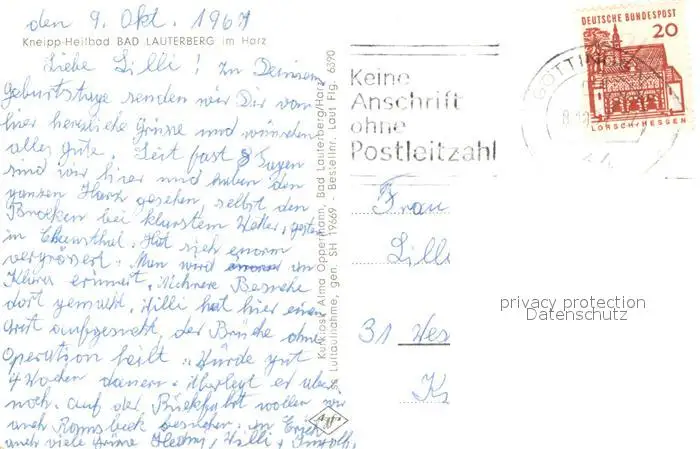 den 9. Okt. 1967
Kneipp-Heilbad BAD LAUTERBERG im Harz
Liebe Lilli! Zu Deinem
Geburtstage senden wir Dir von
hier herzliche Grüsse und wünschen
alles gute. Seit fast 8 Tagen
sind wir hier und haben den
ganzen Harz gesehen, selbst den
Brocken bei klarstem Wetter, gestern
in Clausthal. Hat sich enorm
vergrössert. Man wird an
erinnert. Mehrere Besuche
dort gemacht. Willi hat hier einen
Arzt aufgesucht, der Brüche ohne
Operation heilt. Würde gut
4 Wochen dauern. Überlegt er aber
noch. Auf der Rückfahrt wollen wir
auch besuchen. An Erich
auch viele Grüsse Willi
Kurkiosk Alma Oppermann, Bad Lauterberg/Harz
Luftaufnahme, gen. SH 19669 - Bestellnr. Laut Flg. 6390
Keine
Anschrift
ohne
Postleitzahl
GÖTTINGEN
DEUTSCHE BUNDESPOST
20
LORSCH/HESSEN
Frau
Lilli
31 Wes
privacy protection
Datenschutz